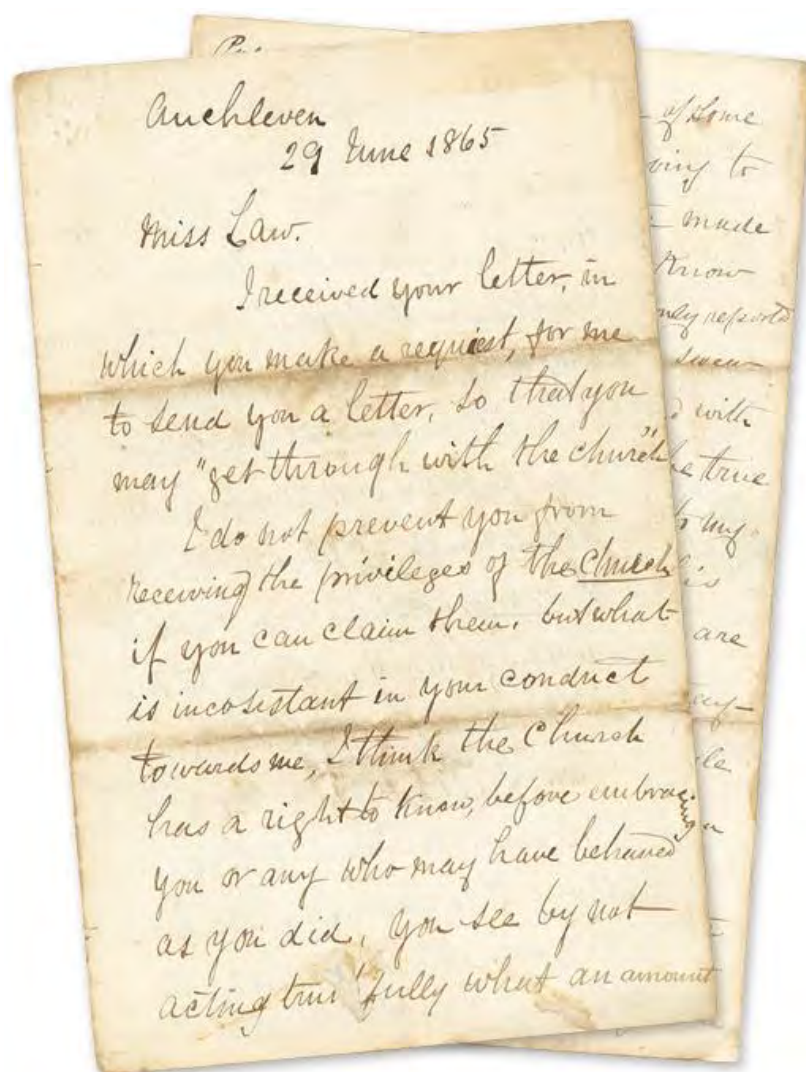 Auchleven
29 June 1865
Miss Law.
I received your letter, in
which you make a request, for me
to send you a letter, so that you
may "get through with the church"
I do not prevent you from
receiving the privileges of the church
if you can claim them. but what
is incosistant in your conduct
towards me, I think the Church
has a right to know, before embracing
you or any who may have behaved
as you did, you see by not
acting truthfully what an amount
of some
ving to
made
Know
only reported
swear
with
the true
to my
his
are
any-